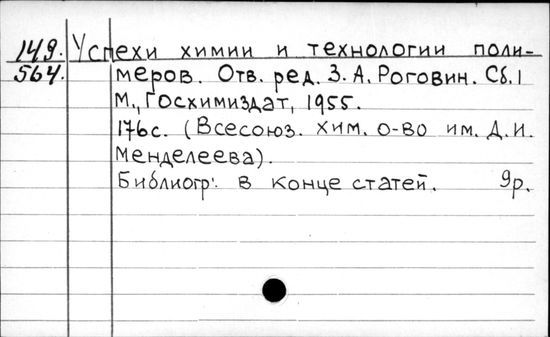 149. Успехи химии и технологии поли-
564. меров. Отв. ред. З. А. Роговин. Сб. 1
М., Госхимиздат, 1955.
176с. (Всесоюз. хим. о-во им. Д. И.
Менделеева).
Библиогр. в конце статей. 9р.